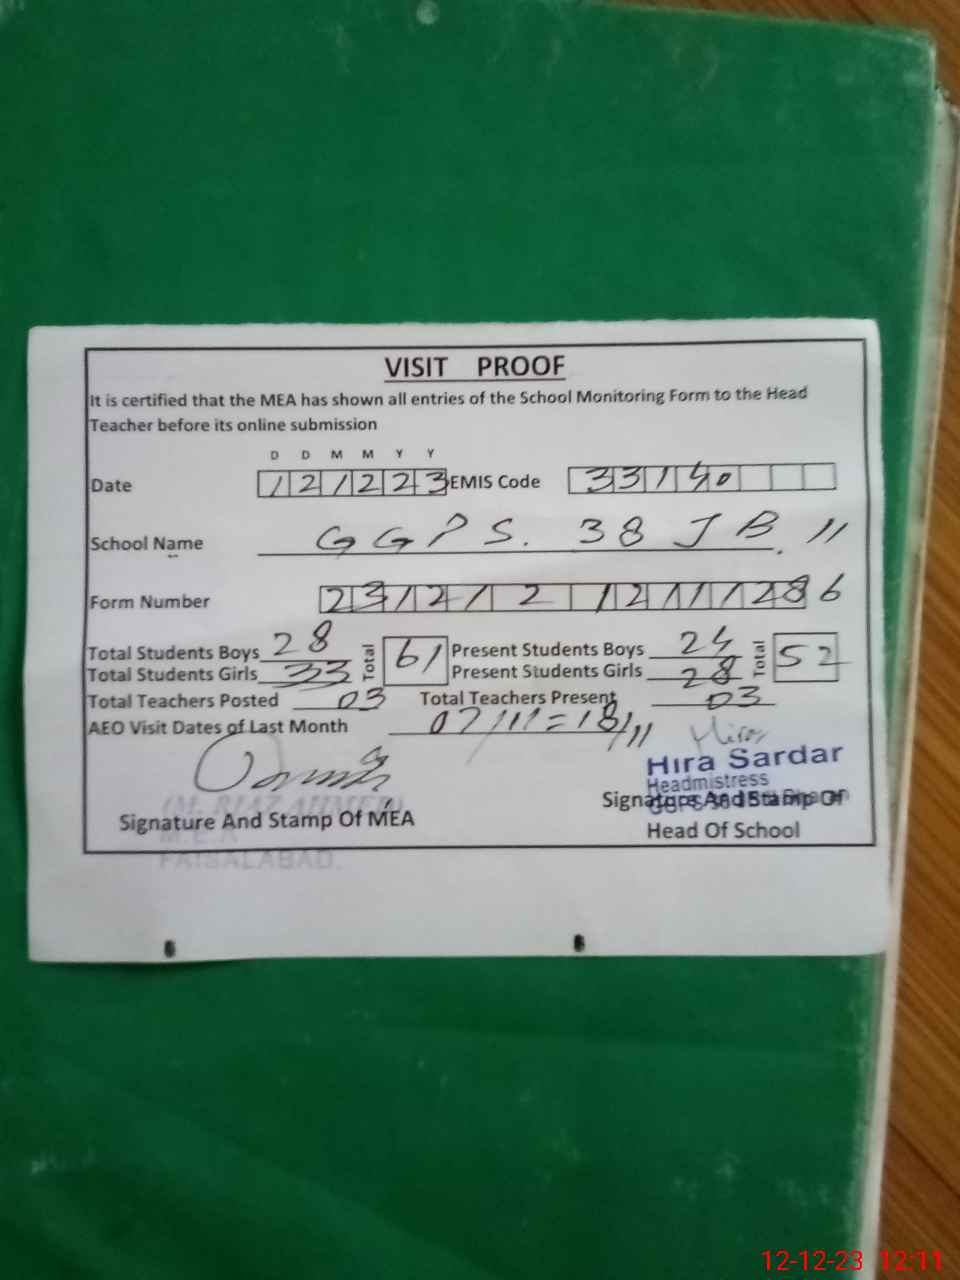 VISIT PROOF
It is certified that the MEA has shown all entries of the School Monitoring Form to the Head
Teacher before its online submission
D D M M Y Y
Date 121223 EMIS Code 33140
School Name GGPS. 38 JB. 11
Form Number 23121 2 12111286
Total Students Boys 28 Total 61 Present Students Boys 24 Total 52
Total Students Girls 33 Present Students Girls 28
Total Teachers Posted 03 Total Teachers Present 03
AEO Visit Dates of Last Month 07/11 = 18/11
Hira Sardar
Headmistress
(M. RIAZ AHMED)
Signature And Stamp Of MEA Signature And Stamp Of
M.E.A Head Of School
FAISALABAD.
12-12-23 12:11